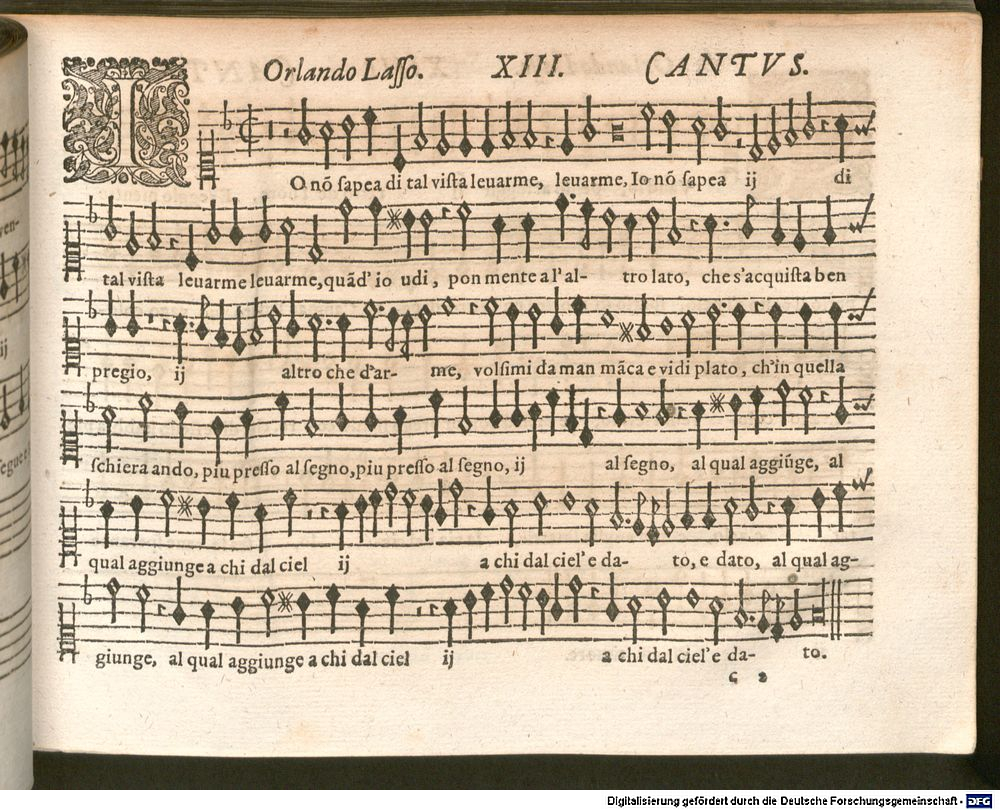 Orlando Lasso. XIII. CANTVS.
IO nõ sapea di tal vista leuarme, leuarme, Io nõ sapea ij di
tal vista leuarme leuarme, quãd' io udi, pon mente a l' al- tro lato, che s'acquista ben
pregio, ij altro che d'ar- me, volsimi da man mãca e vidi plato, ch'in quella
schiera ando, piu presso al segno, piu presso al segno, ij al segno, al qual aggiũge, al
qual aggiunge a chi dal ciel ij a chi dal ciel' e da- to, e dato, al qual ag-
giunge, al qual aggiunge a chi dal ciel ij a chi dal ciel' e da- to.
C 2
ven-
ij
segue
Digitalisierung gefördert durch die Deutsche Forschungsgemeinschaft - DFG